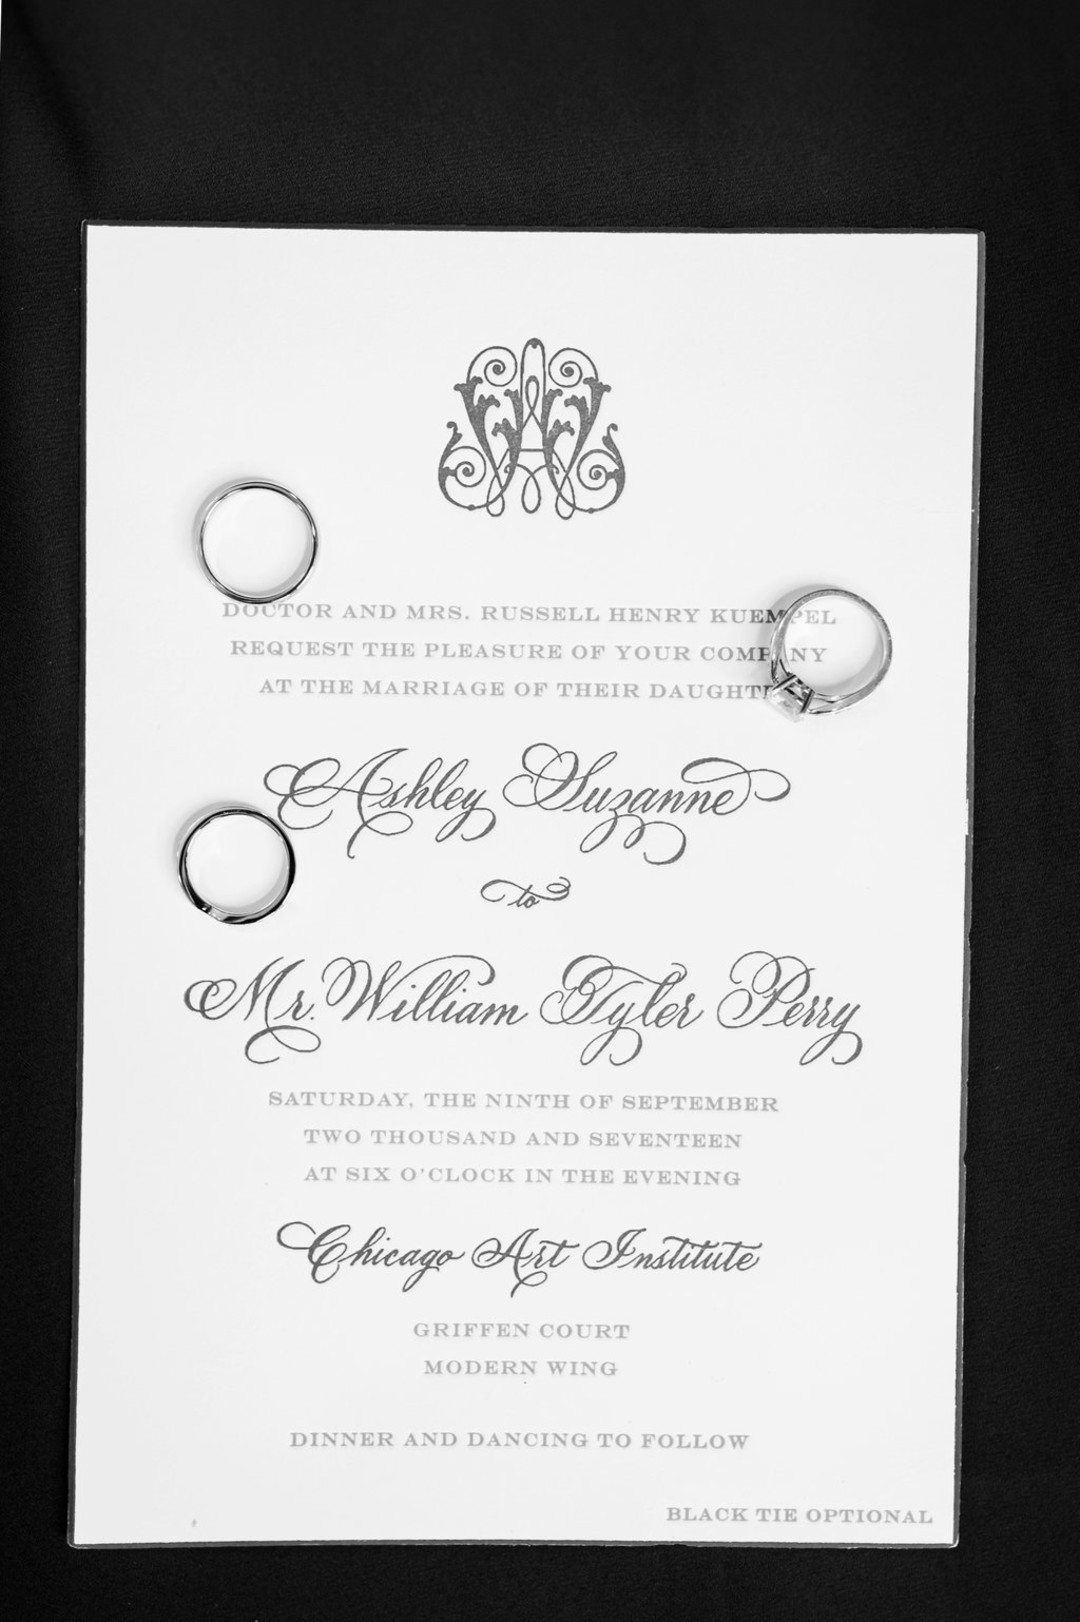 DOCTOR AND MRS. RUSSELL HENRY KUEMPEL
REQUEST THE PLEASURE OF YOUR COMPANY
AT THE MARRIAGE OF THEIR DAUGHTER
Ashley Suzanne
to
Mr. William Tyler Perry
SATURDAY, THE NINTH OF SEPTEMBER
TWO THOUSAND AND SEVENTEEN
AT SIX O'CLOCK IN THE EVENING
Chicago Art Institute
GRIFFEN COURT
MODERN WING
DINNER AND DANCING TO FOLLOW
BLACK TIE OPTIONAL